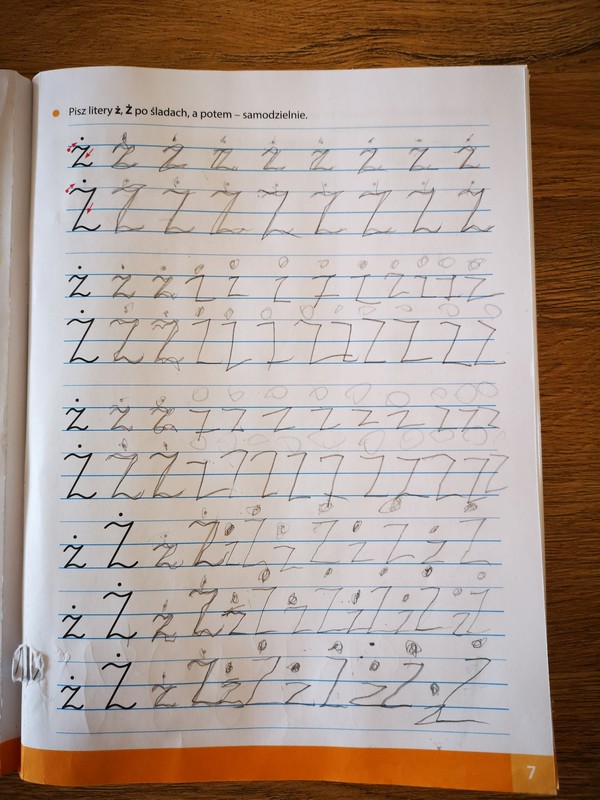 Pisz litery ż, Ż po śladach, a potem – samodzielnie.
ż ż ż ż ż ż ż ż ż
Ż Ż Ż Ż Ż Ż Ż Ż Ż
ż ż ż ż ż ż ż ż ż ż ż ż
Ż Ż Ż Ż Ż Ż Ż Ż Ż Ż Ż Ż
ż ż ż ż ż ż ż ż ż ż ż ż
Ż Ż Ż Ż Ż Ż Ż Ż Ż Ż Ż Ż Ż
ż Ż ż Ż ż Ż ż Ż ż Ż ż Ż
ż Ż ż Ż ż Ż ż Ż ż Ż ż Ż ż Ż
ż Ż ż Ż ż Ż ż Ż ż Ż ż Ż
7